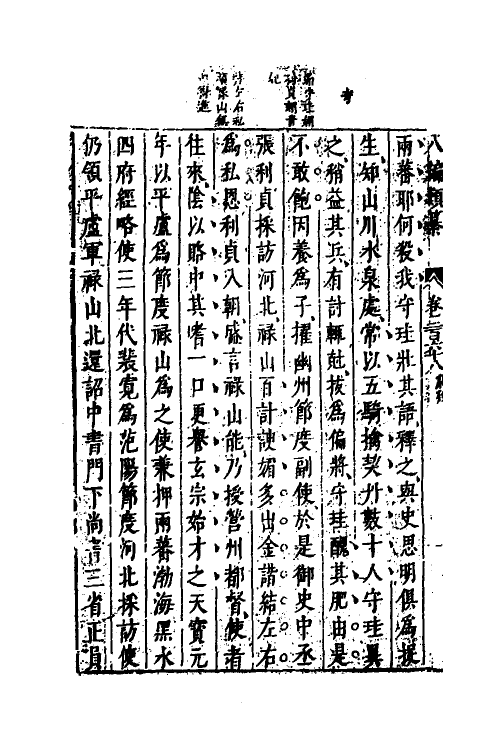 八編類纂 卷
兩蕃耶何殺我守珪壯其語釋之與史思明俱爲捉
生知山川水泉處常以五騎擒契丹數十人守珪異
之稍益其兵有討輒尅拔爲偏將守珪醜其肥由是
不敢飽因養爲子擢幽州節度副使於是御史中丞
張利貞採訪河北祿山百計諛媚多出金諧結左右
爲私恩利貞入朝盛言祿山能乃授營州都督使者
往來陰以賂中其嗜一口更譽玄宗始才之天寶元
年以平盧爲節度祿山爲之使兼押兩蕃渤海黑水
四府經略使三年代裴寬爲范陽節度河北採訪使
仍領平盧軍祿山北還詔中書門下尚書三省正員